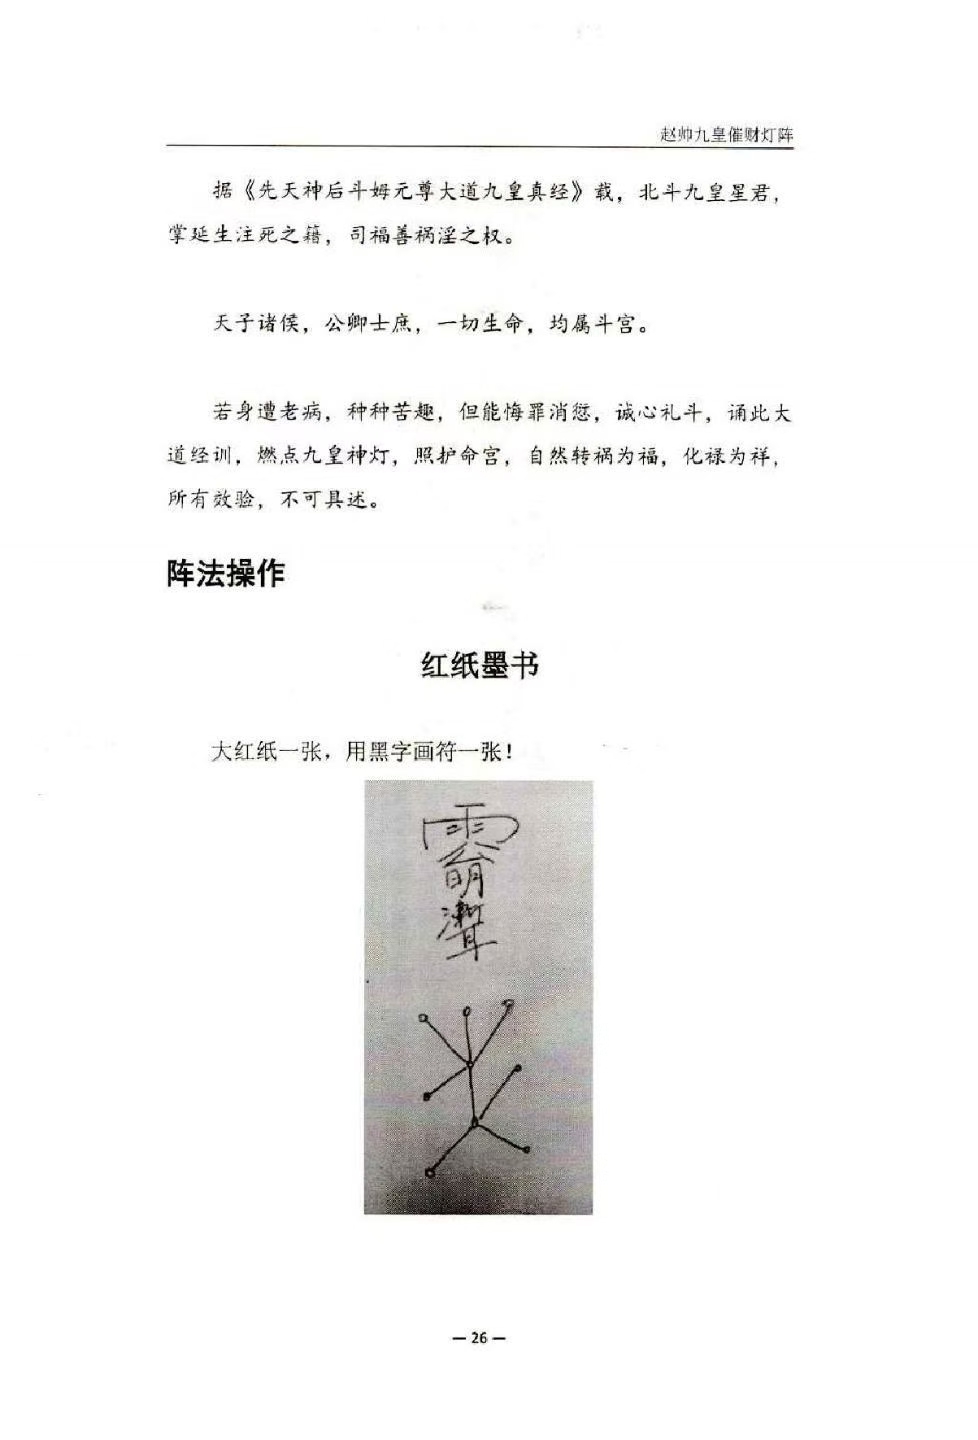 赵帅九皇催财灯阵
据《先天神后斗姆元尊大道九皇真经》载，北斗九皇星君，
掌延生注死之籍，司福善祸淫之权。
天子诸侯，公卿士庶，一切生命，均属斗宫。
若身遭老病，种种苦趣，但能悔罪消愆，诚心礼斗，诵此大
道经训，燃点九皇神灯，照护命宫，自然转祸为福，化禄为祥，
所有效验，不可具述。
阵法操作
红纸墨书
大红纸一张，用黑字画符一张！
— 26 —